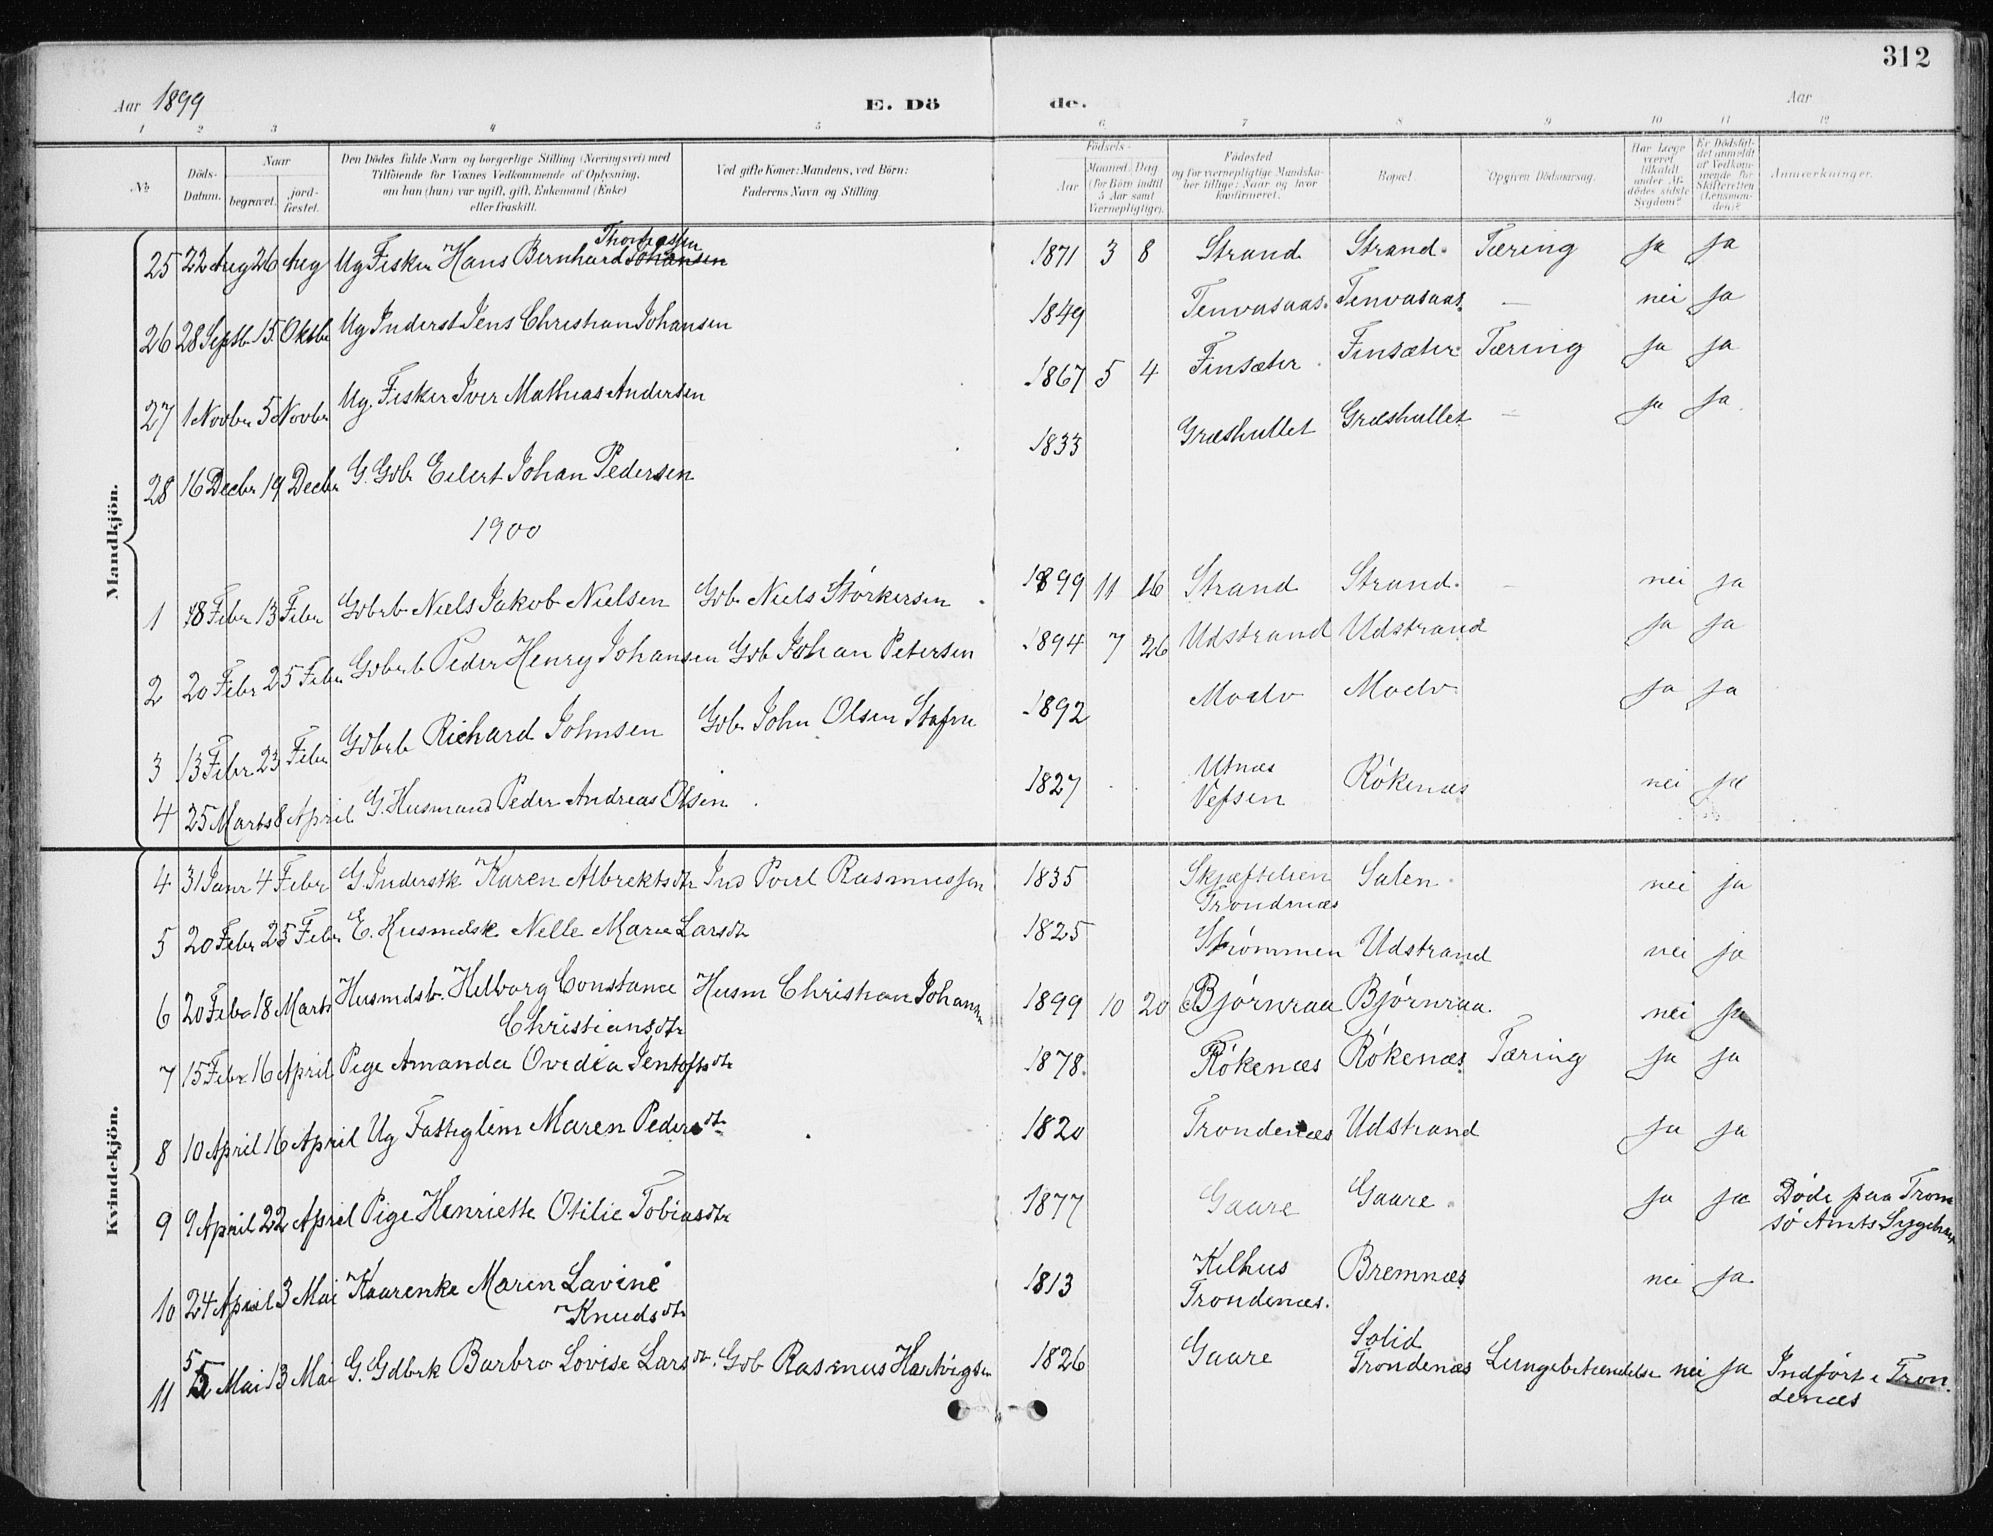 312
Aar 1899 E. Dö de. Aar
1 2 3 4 5 6 7 8 9 10 11 12
№ Döds-Datum. Naar begravet. jord-fæstet. Den Dödes fulde Navn og borgerlige Stilling (Næringsvei) med Tilföiende for Voxnes Vedkommende af Oplysning, om han (hun) var ugift, gift, Enkemand (Enke) eller fraskilt. Ved gifte Koner: Mandens, ved Börn: Faderens Navn og Stilling. Födsels- Aar Maaned Dag (for Börn indtil 5 Aar samt Værnepligtige). Födested og for værnepligtige Mandskaber tillige: Naar og hvor konfirmeret. Bopæl. Opgiven Dödsaarsag. Har Læge været tilkaldt under Afdödes sidste Sygdom? Er Dödsfaldet anmeldt af Vedkommende for Skifteretten (Lensmanden)? Anmærkninger.
Mandkjön.
Thomassen
25 22 Aug 26 Aug Ug Fisker Hans Bernhard Johansen 1871 3 8 Strand Strand Tæring ja ja
26 28 Septb 15 Oktbr Ug Inderst Jens Christian Johansen 1849 Tenvasaas Tenvasaas — nei ja
27 1 Novbr 5 Novbr Ug. Fisker Iver Mathias Andersen 1867 5 4 Finsæter Finsæter Tæring ja ja
28 16 Decbr 19 Decbr G. Gbr Eilert Johan Pedersen 1833 Græshullet Græshullet — ja ja
1900
1 18 Febr 13 Febr Gbrb Niels Jakob Nielsen Gbr. Niels Störkersen 1899 11 16 Strand Strand. — nei ja
2 20 Febr 25 Febr Gbrb Peder Henry Johansen Gbr Johan Petersen 1894 7 26 Udstrand Udstrand ja ja
3 13 Febr 23 Febr Gdbrb Richard Johnsen Gbr John Olsen Stafne 1892 Moelv Moelv ja ja
4 25 Marts 8 April G. Husmand Peder Andreas Olsen 1827 Utnæs Vefsen Rökenæs nei ja
Kvindekjön.
4 31 Janr 4 Febr G. Inderstk Karen Albrektsdtr Ind Poul Rasmussen 1835 Skjæftelien Trondenæs Salen nei ja
5 20 Febr 25 Febr E. Husmdsk Nelle Marie Larsdtr 1825 Strömmen Udstrand nei ja
6 20 Febr 18 Marts Husmdsb. Helborg Constance Husm Christian Johansen 1899 10 20 Björnraa Björnraa. nei ja
Christiansdtr
7 15 Febr 16 April Pige Amanda Ovedia Jentoftsdtr 1878. Rökenæs Rökenæs Tæring ja ja
8 10 April 16 April Ug Fattiglem Maren Pedersdtr 1820 Trondenæs Udstrand ja ja
9 9 April 22 April Pige Henriette Otilie Tobiasdtr 1877 Gaare Gaare ja ja Döde paa Trom
sö Amts Sygehus
10 24 April 3 Mai Kaarenke Maren Lavine 1813 Kilhus Bremnæs nei ja
Knudsdtr Trondenæs.
11 5 Mai 13 Mai G. Gdbrk Barbro Lovise Larsdtr. Gdb Rasmus Hartvigsen 1826 Gaare Solid Trondenæs Lungebetændelse nei ja Indfört i Tron
denæs